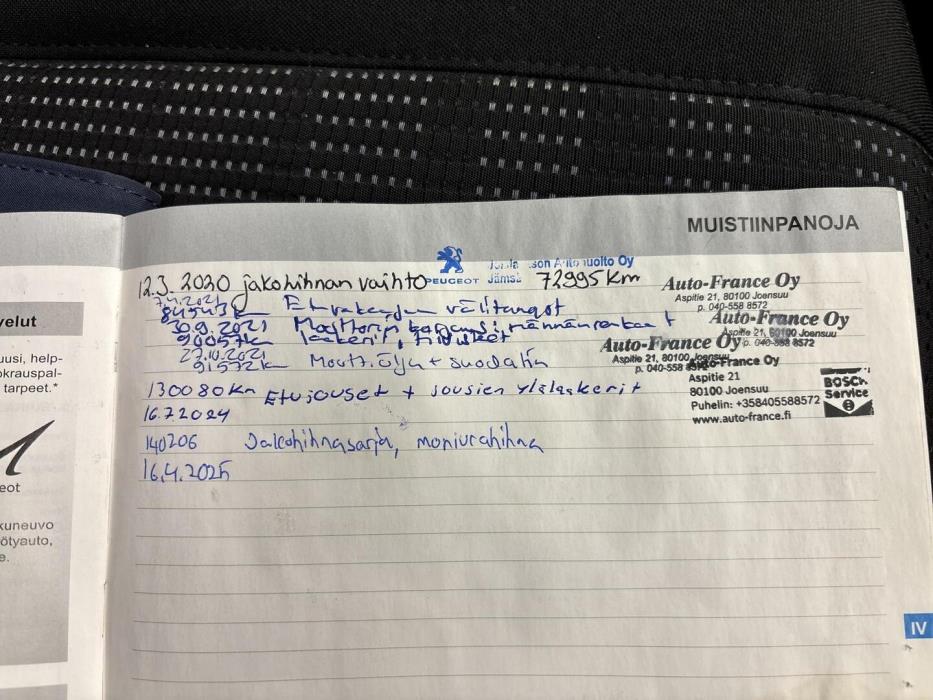 MUISTIINPANOJA
PEUGEOT
son Autotuolto Oy
Jämsä
12.3. 2020 jakohihnan vaihto 72995 km
Auto-France Oy
Aspitie 21, 80100 Joensuu
p. 040-558 8572
7.4.2021
84543 km Etuvakaajan välitangot
Auto-France Oy
Aspitie 21, 80100 Joensuu
p. 040-558 8572
30.9.2021 Moottorin korjaus, männänrenkaat
90057 km laakerit, tiivisteet
Auto-France Oy
Aspitie 21, 80100 Joensuu
p. 040-558
29.10.2021
91572 km Moott. öljy + suodatin
Auto-France Oy
Aspitie 21
80100 Joensuu
Puhelin: +358405588572
www.auto-france.fi
BOSCH
Service
130080 km Etujouset + jousien ylälaakerit
16.7.2024
140206 Jakohihnasarja, moniurahihna
16.4.2025
IV
velut
uusi, help-
okrauspal-
tarpeet.*
eot
kuneuvo
ötyauto,
e.